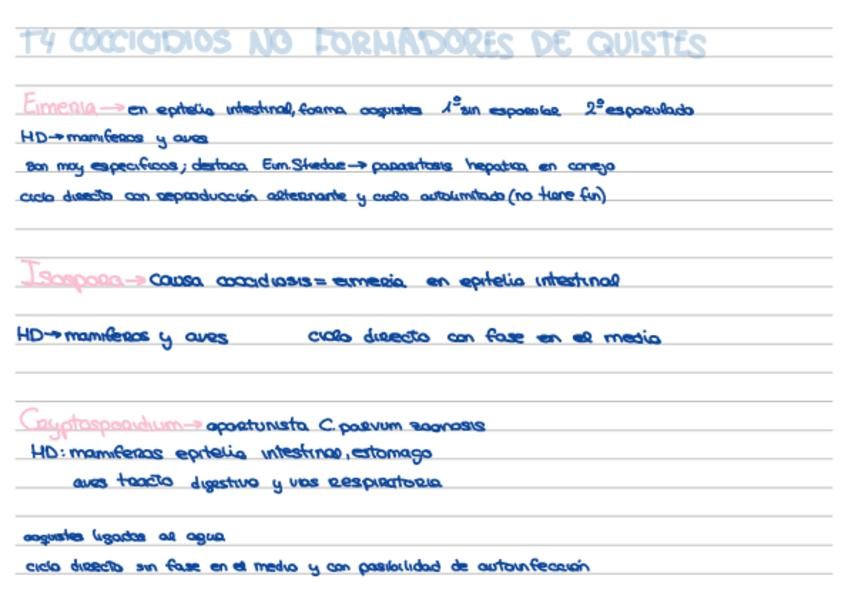 T4 COCCICIDIOS NO FORMADORES DE QUISTES
Eimeria → en epitelio intestinal, forma ooquistes 1º sin esporular 2º esporulado
HD → mamiferos y aves
son muy especificos; destaca Eim. Stiedae → parasitosis hepatica en conejo
ciclo directo con reproducción alternante y ciclo autolimitado (no tiene fin)
Isospora → causa coccidiosis = eimeria en epitelio intestinal
HD → mamiferos y aves ciclo directo con fase en el medio
Cryptosporidium → oportunista C. parvum zoonosis
HD: mamiferos epitelio intestinal, estomago
aves tracto digestivo y vias respiratoria
ooquistes ligados al agua
ciclo directo sin fase en el medio y con posibilidad de autoinfección